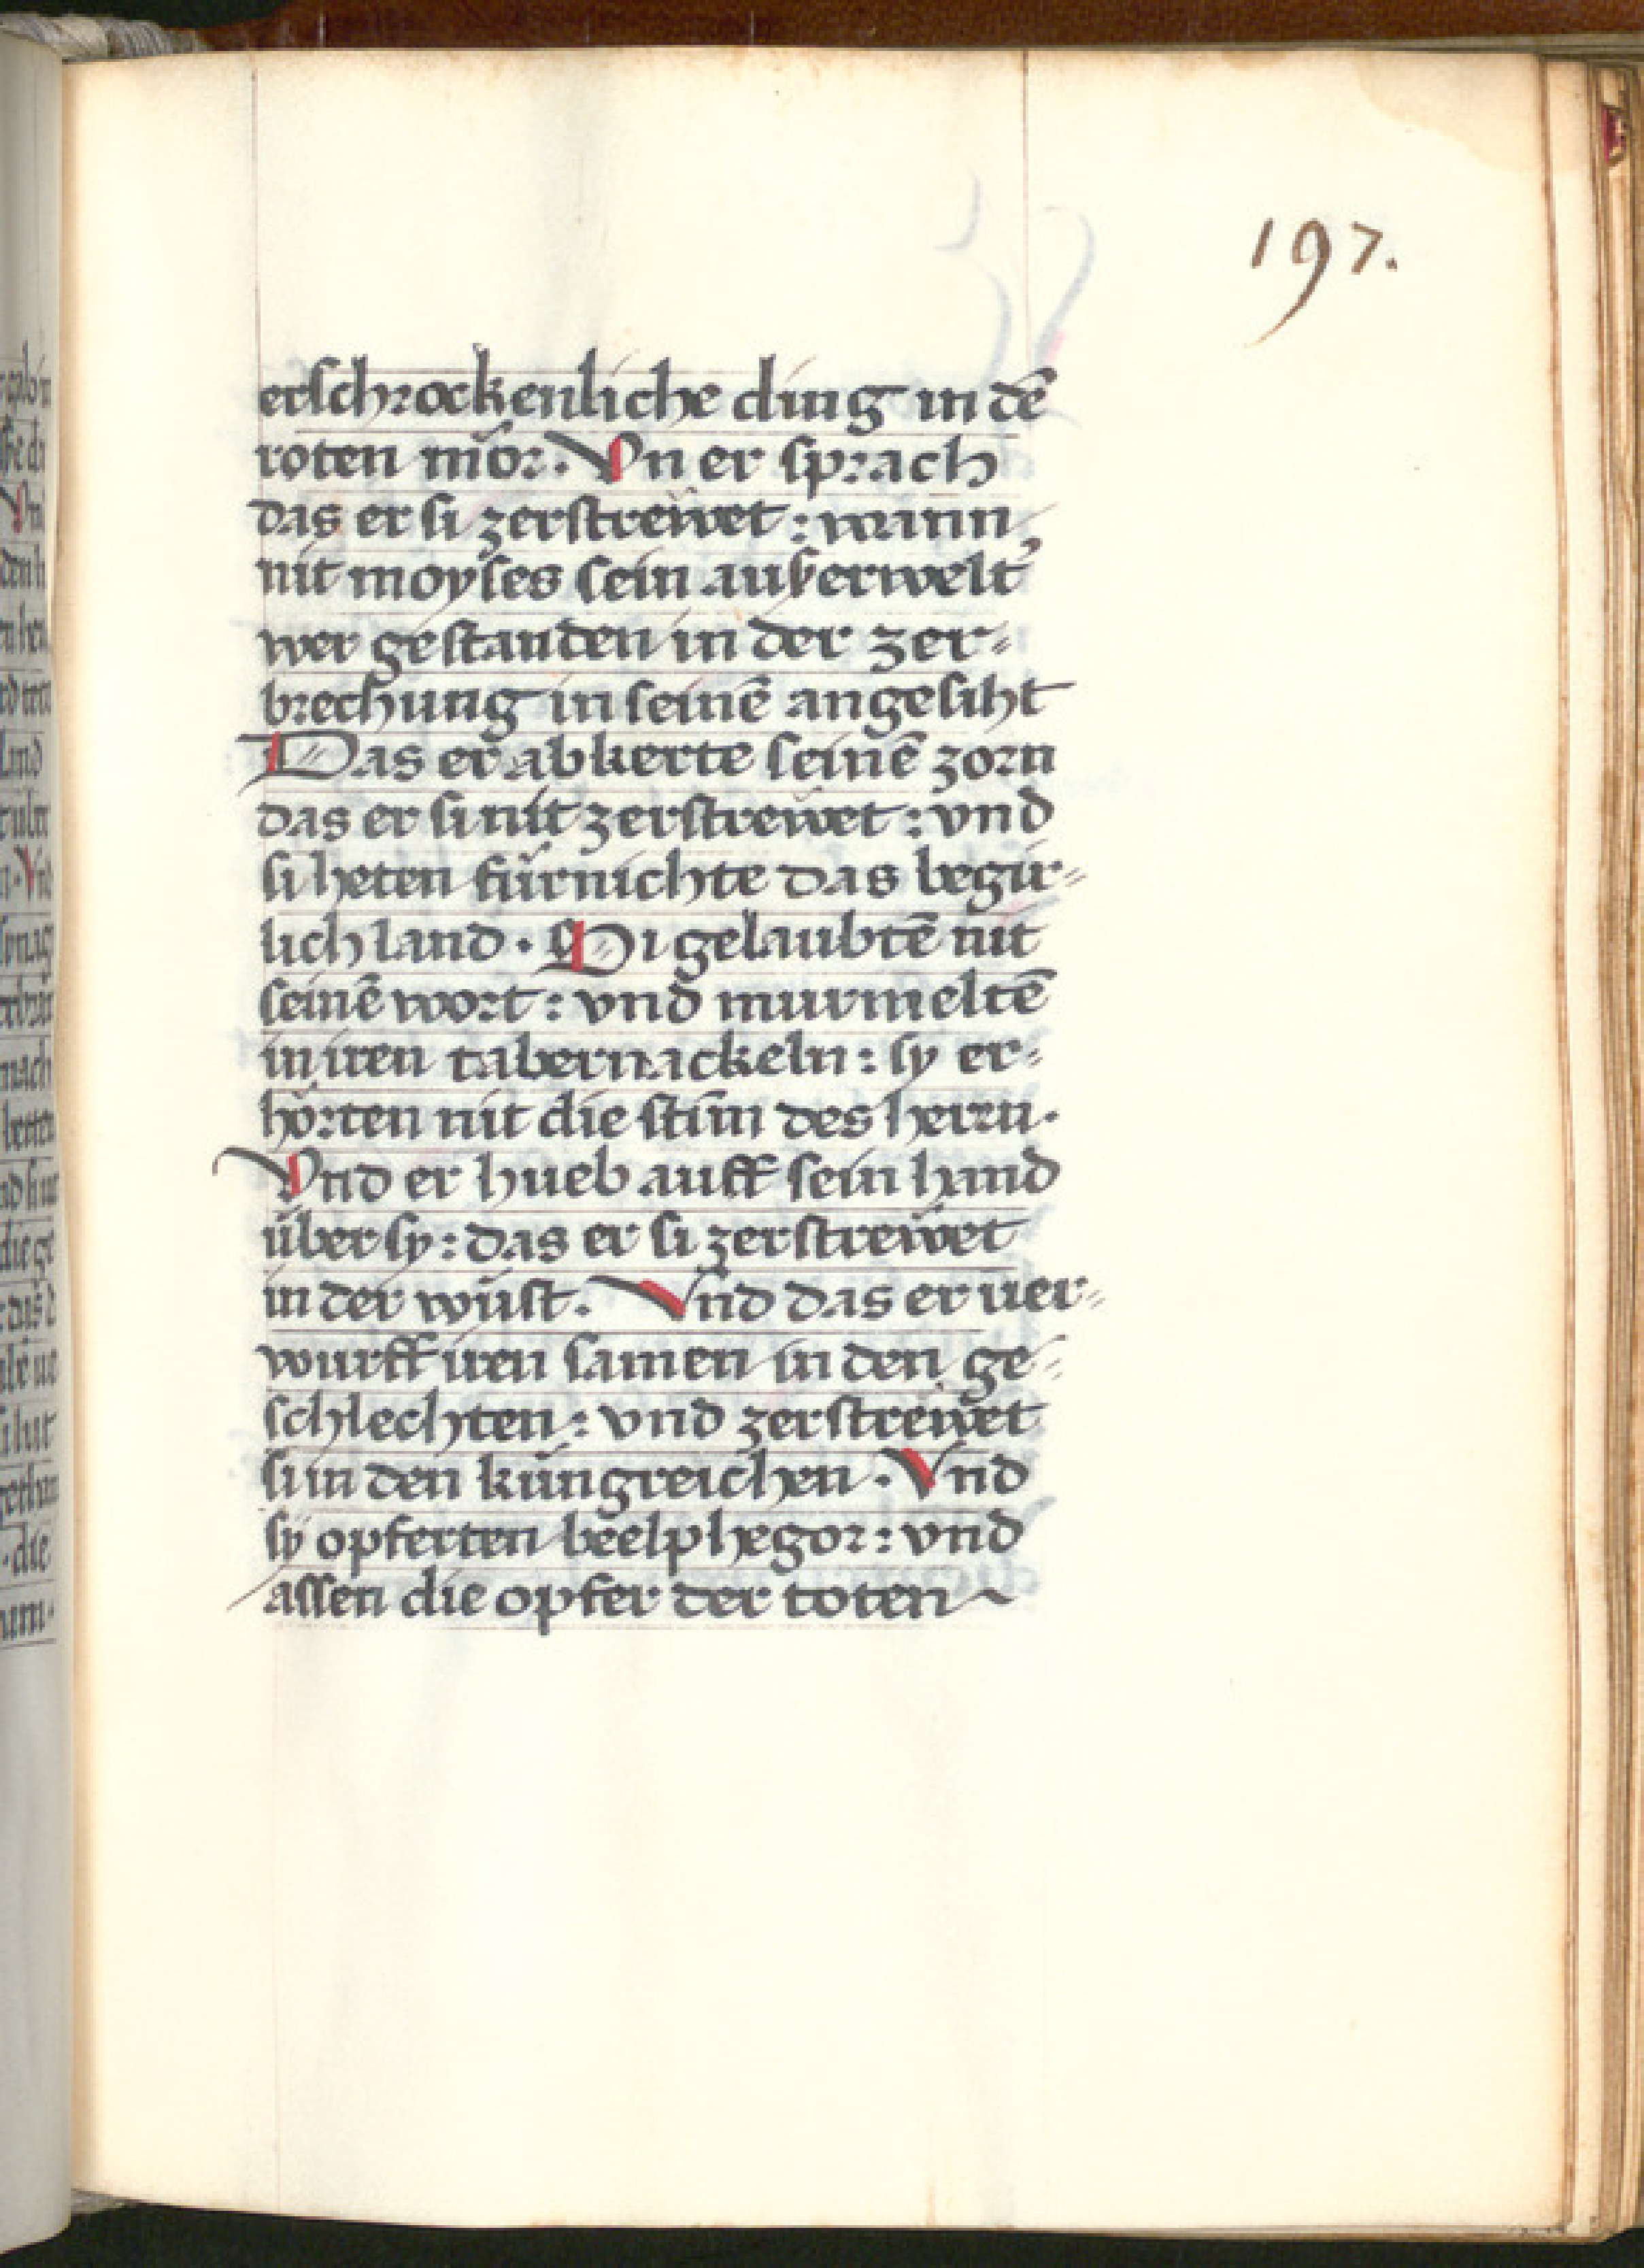 197.
erschrockenliche ding in dē
roten mör. Vn er sprach
das er si zerstreẅet: wann,
nit moyses sein außerwelt
wer gestanden in der zer⸗
brechung in seinē angesiht
Das er abkerte seinē zorn
das er si nit zerstreẅet: vnd
si heten fürnichte das begir⸗
lich land. Si gelaubtē nit
seinē wort: vnd murmeltē
in iren tabernackeln: sy er⸗
hörten nit die stim des herrn.
Vnd er hueb auff sein hand
über sy: das er si zerstreẅet
in der wüst. Vnd das er uer⸗
wurff iren samen in den ge⸗
schlechten: vnd zerstreẅet
si in den küngreichen. Vnd
sy opferten beelphegor: vnd
assen die opfer der toten